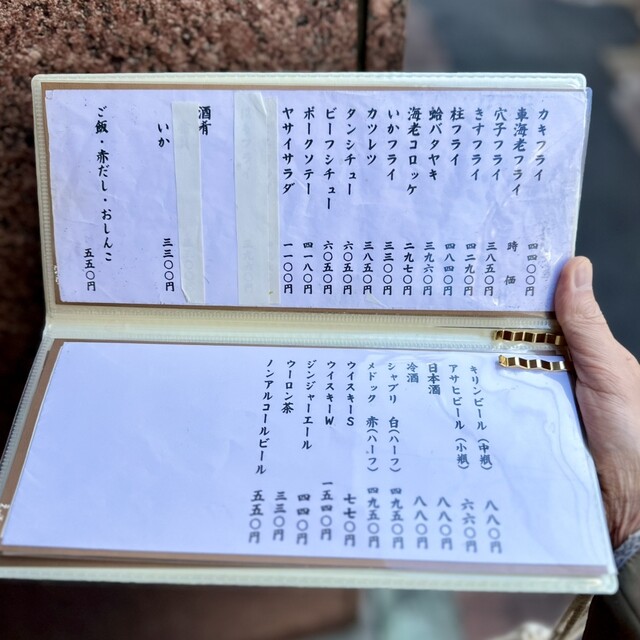 カキフライ 四四〇〇円
車海老フライ 時価
穴子フライ 三八五〇円
きすフライ 四二九〇円
柱フライ 四八四〇円
蛤バタヤキ 三九六〇円
海老コロッケ 二九七〇円
いかフライ 三三〇〇円
カツレツ 三八五〇円
タンシチュー 六〇五〇円
ビーフシチュー 六〇五〇円
ポークソテー 四一八〇円
ヤサイサラダ 一一〇〇円
酒肴
いか 三三〇〇円
ご飯・赤だし・おしんこ 五五〇円
キリンビール (中瓶) 八八〇円
アサヒビール (小瓶) 六六〇円
日本酒 八八〇円
冷酒 八八〇円
シャブリ 白(ハーフ) 四九五〇円
メドック 赤(ハーフ) 四九五〇円
ウイスキーS 七七〇円
ウイスキーW 一五四〇円
ジンジャーエール 四四〇円
ウーロン茶 三三〇円
ノンアルコールビール 五五〇円